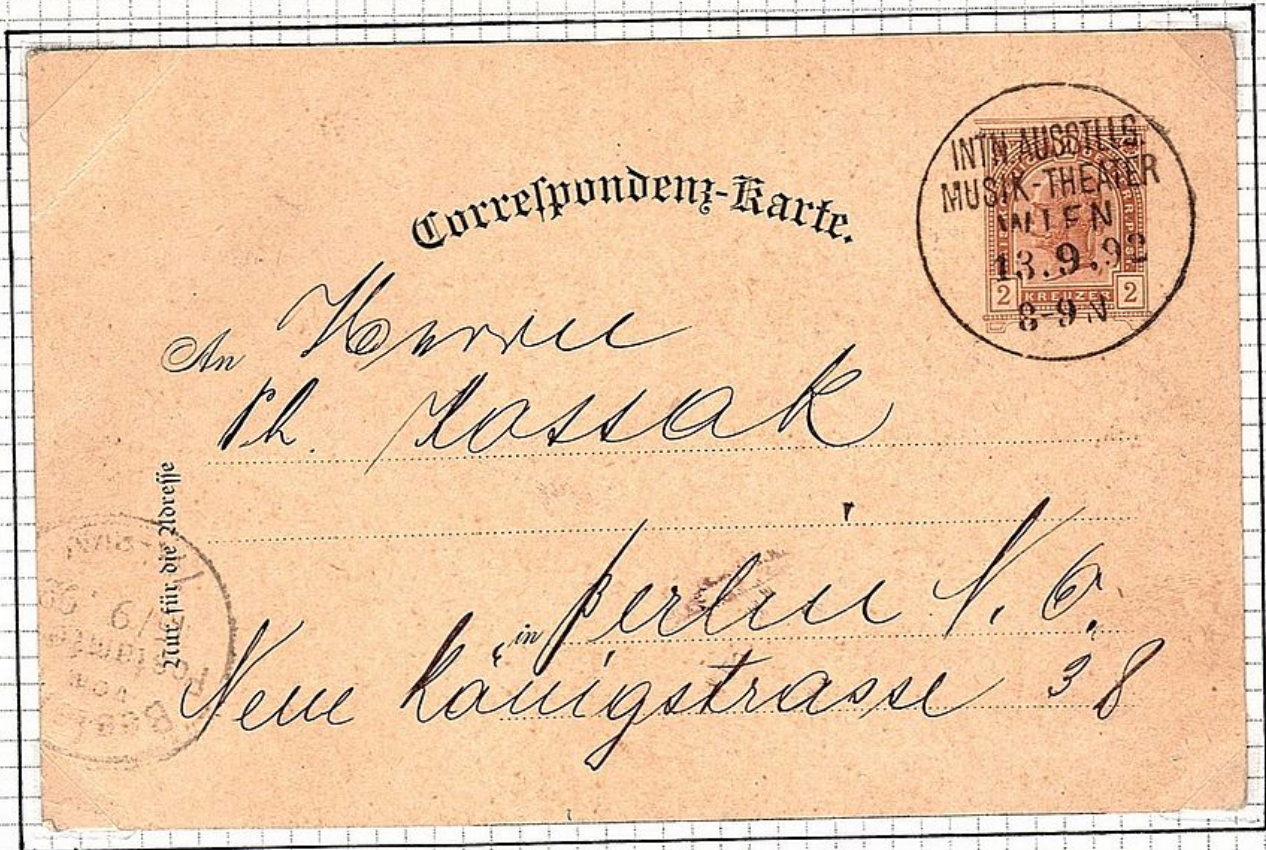 Correſpondenz-Karte.
INTN. AUSSTLLG.
MUSIK-THEATER
WIEN
13.9.92
8-9 N
2 KREUZER 2
An Herrn
Ph. Kossak
in Berlin N. O.
Neue Königstrasse 38
Nur für die Adreſſe
Postamte
vom